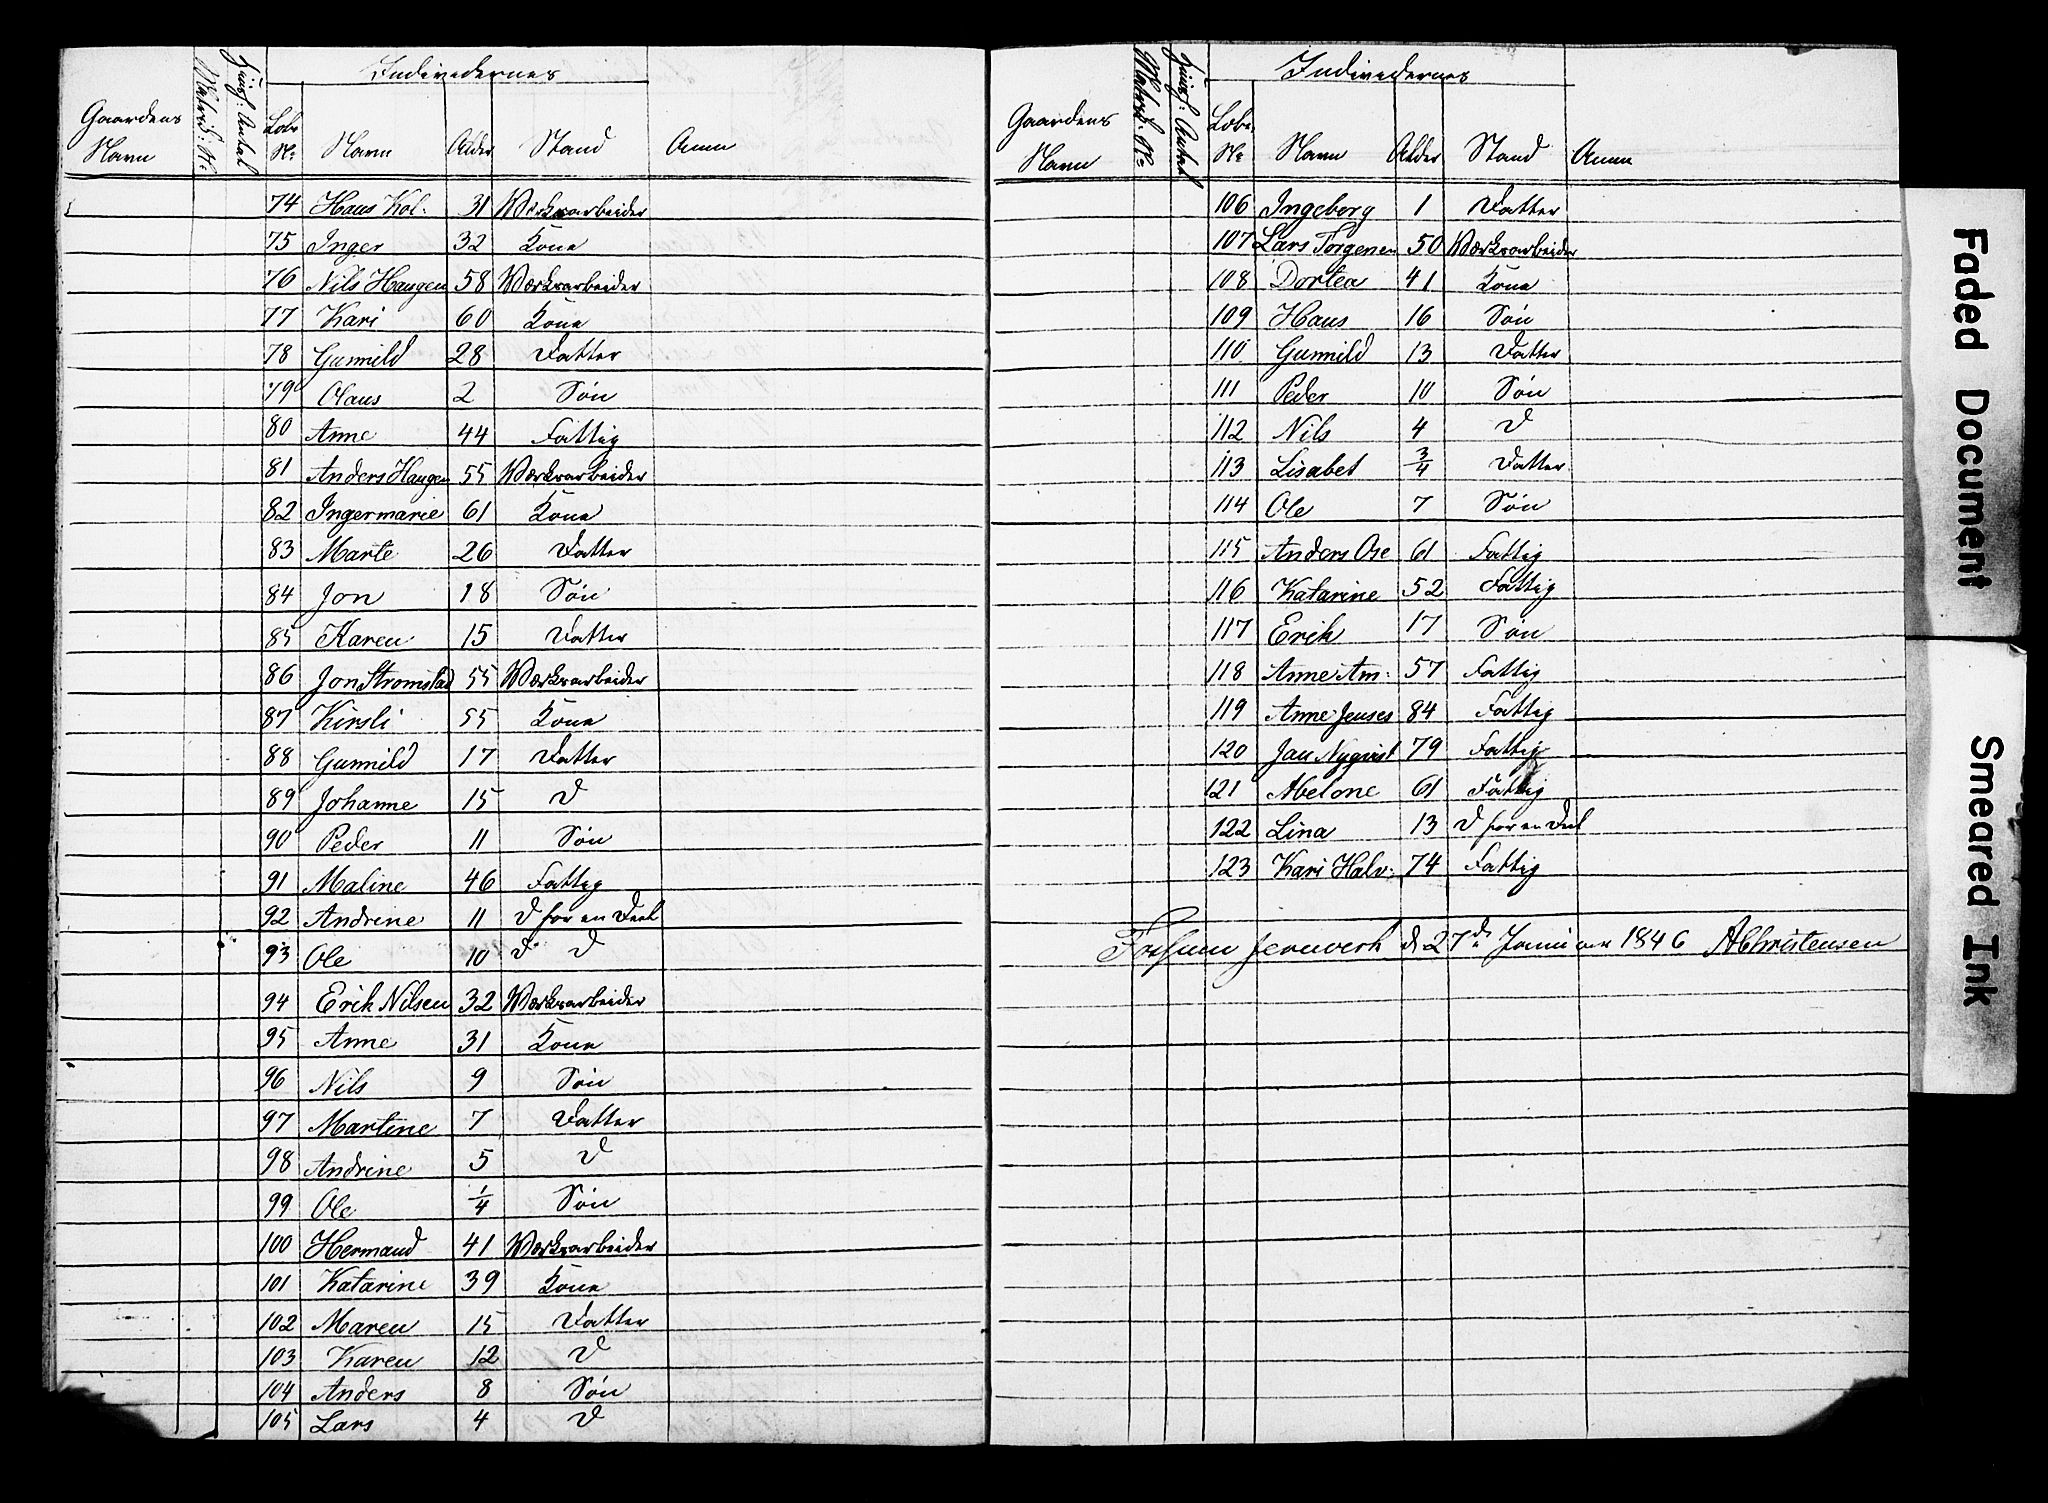 Gaardens Navn Matric: No Huusf: Antal Individernes Lobe No Navn Alder Stand Anm
74 Hans Kol: 31 Værksarbeider
75 Inger 32 Kone
76 Nils Haugen 58 Værksarbeider
77 Kari 60 Kone
78 Gunnild 28 Datter
79 Olaus 2 Søn
80 Anne 44 Fattig
81 Anders Haugen 55 Værksarbeider
82 Ingermarie 61 Kone
83 Marte 26 Datter
84 Jon 18 Søn
85 Karen 15 Datter
86 Jon Strømstad 55 Værksarbeider
87 Kirsti 55 Kone
88 Gunnild 17 Datter
89 Johanne 15 D
90 Peder 11 Søn
91 Maline 46 Fattig
92 Andrine 11 D for en Deel
93 Ole 10 D D
94 Erik Nilsen 32 Værksarbeider
95 Anne 31 Kone
96 Nils 9 Søn
97 Martine 7 Datter
98 Andrine 5 D
99 Ole 1/4 Søn
100 Hermand 41 Værksarbeider
101 Katarine 39 Kone
102 Maren 15 Datter
103 Karen 12 D
104 Anders 8 Søn
105 Lars 4 D
Gaardens Navn Matric: No Huusf: Antal Individernes Lobe No Navn Alder Stand Anm
106 Ingeborg 1 Datter
107 Lars Torgersen 50 Værksarbeider
108 Dortea 41 Kone
109 Hans 16 Søn
110 Gunnild 13 Datter
111 Peder 10 Søn
112 Nils 4 D
113 Lisabet 3/4 Datter
114 Ole 7 Søn
115 Anders Ose 61 Fattig
116 Katarine 52 Fattig
117 Erik 17 Søn
118 Anne Am: 57 Fattig
119 Anne Jenses 84 Fattig
120 Jan Nyqvist 79 Fattig
121 Abelone 61 Fattig
122 Lina 13 D for en Deel
123 Kari Halv: 74 Fattig
Fossum Jernverk d 27de Januar 1846 AChristensen
Faded Document
Smeared Ink